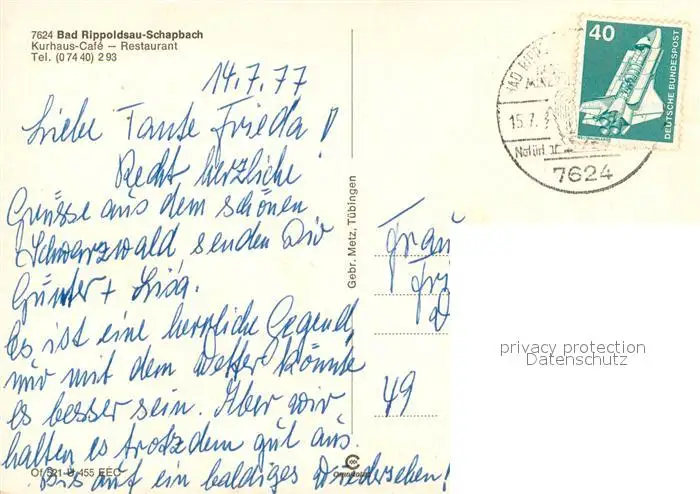 7624 Bad Rippoldsau-Schapbach
Kurhaus-Café — Restaurant
Tel. (0 74 40) 2 93
14.7.77
Liebe Tante Frieda!
Recht herzliche
Grüsse aus dem schönen
Schwarzwald senden Dir
Günter + Lisa.
Es ist eine herrliche Gegend,
nur mit dem Wetter könnte
es besser sein. Aber wir
halten es trotzdem gut aus.
Bis auf ein baldiges Wiedersehen!
Of 521 U 455 EEC
Gebr. Metz, Tübingen
40
DEUTSCHE BUNDESPOST
BAD
15.7.
7624
Frau
49
privacy protection
Datenschutz